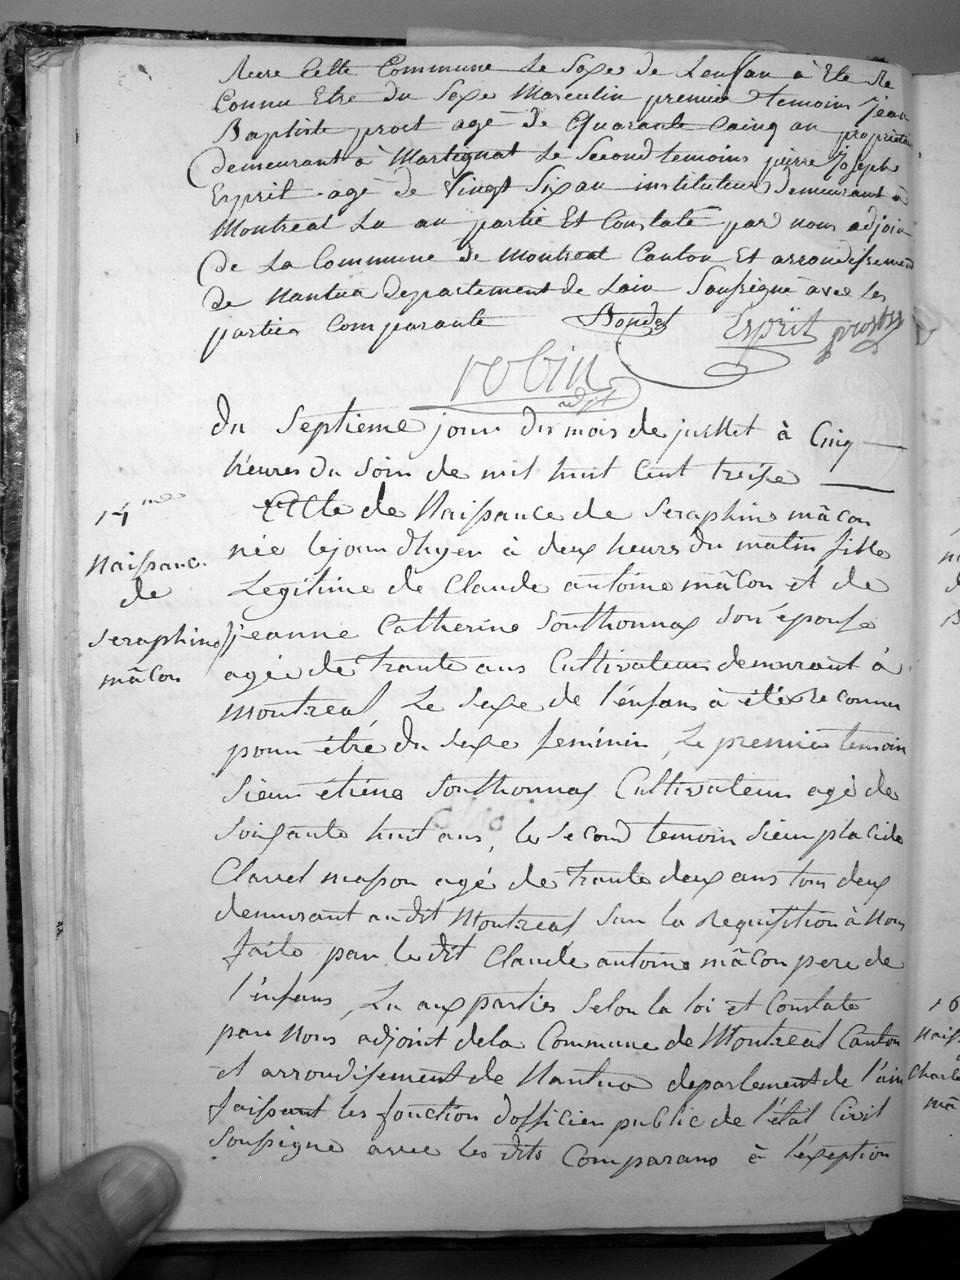 Mere Cette Commune Le Sexe de Lenfan à Ete Re
Connu Etre du Sexe Masculin premie temoins jean
Baptiste prost agé de Quarante Cainq an proprietai
demeurant à Martignat Le Second temoins pierre Joseph
Esprit agé de Vingt Six an instituteur demeurant à
Montreal Lu au partie Et Constaté par nous adjoin
de La Commune de Montreal Canton Et arrondissement
de Nantua departement de Lain Soussigné avec les
parties Comparante Bondet Esprit prost
robin
adjt
Du Septieme jour du mois de juillet à Cinq
heures du Soir de mil huit Cent treise
14me
Acte de Naissance de Seraphine mâcon
née lejour d'hyer à deux heures du matin fille
Naissance
Legitime de Claude antoine mâcon et de
de
jeanne Catherine Southonnax Son épouse
Seraphine
agée de trante ans Cultivateur demeurant à
mâcon
Montreal Le Sexe de l'enfans à été Reconnu
pour être du Sexe feminin, Le premie temoin
Sieur etiéne Southonnax Cultivateur agé de
Soixante huit ans, le Second temoin Sieur placide
Clavel masson agé de trante deux ans tous deux
demeurant audit Montreal Sur la Requisition à Nous
faite par le dit Claude antoine mâcon pere de
l'enfans, Lu aux parties Selon la loi et Constaté
par Nous adjoint dela Commune de Montreal Canton
et arrondisement de Nantua departement de l'ain
faissant les fonction d'officier public de l'état Civil
Soussigne avec les dits Comparans à l'exeption
16
Naiss
Charle
mâ